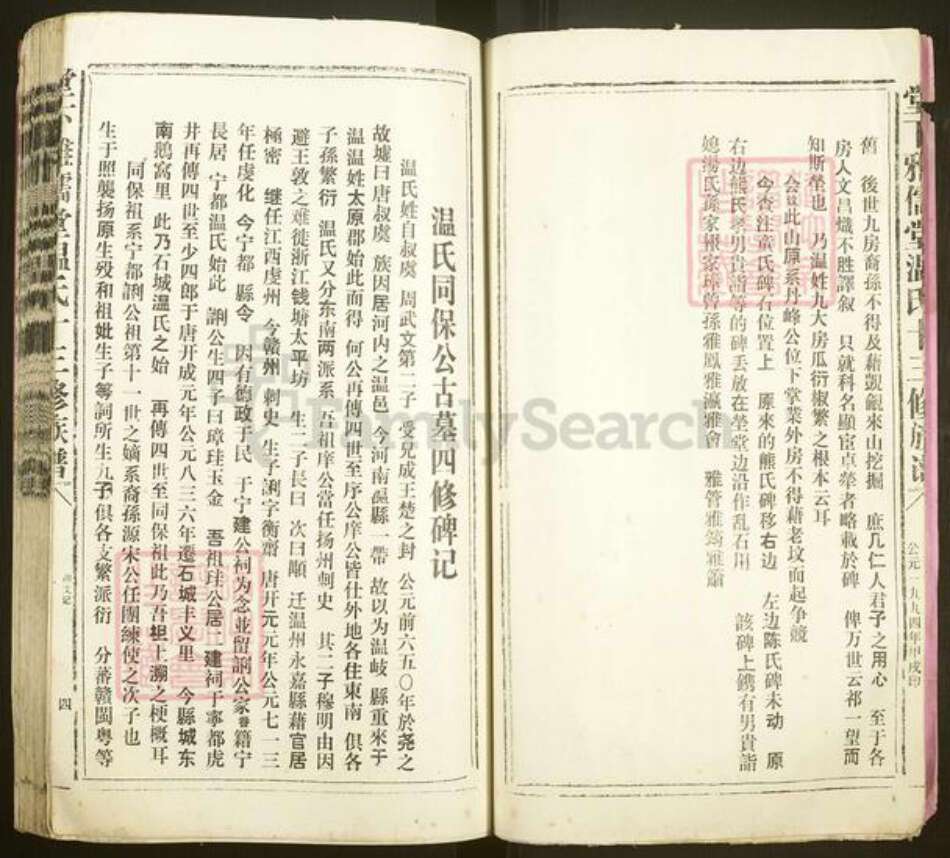 舊　後世九房裔孫不得及藉覬覦來山挖掘　庶几仁人君子之用心　至于各
房人文昌熾不胜譯叙　只就科名顯宦卓犖者略載於碑　俾万世云祁一望而
知斯塋也　乃温姓九大房瓜衍椒繁之根本云耳
会议此山原系丹峰公位下掌業外房不得藉老坟而起争競
今查注童氏碑石位置上　原來的熊氏碑移右边　左边陈氏碑未动　原
右边熊氏季男貴諧等的碑丢放在塋堂边沿作乱石用　該碑上鐫有男貴諧
媳湯氏孫家根家璋曾孫雅鳳雅瀛雅會　雅管雅筠雅簫
公元一九九四年甲戌印
温氏同保公古墓四修碑记
温氏姓自叔虞　周武文第二子　受兄成王楚之封　公元前六五〇年於尧之
故墟曰唐叔虞　族因居河内之温邑　今河南温縣一帶　故以为温岐　縣重來于
温温姓太原郡始此而得　何公再傳四世至序公庠公皆仕外地各住東南　俱各
子孫繁衍　温氏又分东南两派系　吾祖庠公當任扬州刺史　其二子穆明由因
避王敦之难徙浙江钱塘太平坊　生二子長曰　次曰顒　迁温州永嘉縣藉官居
極密　继任江西虔州　今赣州　刺史　生子詗字衡齋　唐开元元年公元七一三
年任虔化　今宁都　縣令　因有德政于民　于宁建公祠为念並留詗公家眷籍宁
長居　宁都温氏始此　詗公生四子曰璋珪玉金　吾祖珪公居二建祠于寧都虎
井再傳四世至少四郎于唐开成元年公元八三六年遷石城丰义里　今縣城东
南鵝窩里　此乃石城温氏之始　再傳四世至同保祖此乃吾祖上溯之梗概耳
同保祖系宁都詗公祖第十一世之嫡系裔孫源宋公任團練使之次子也
生于照襲扬原生殁和祖妣生子等詞所生九子俱各支繁派衍　分蕃赣閩粤等
四